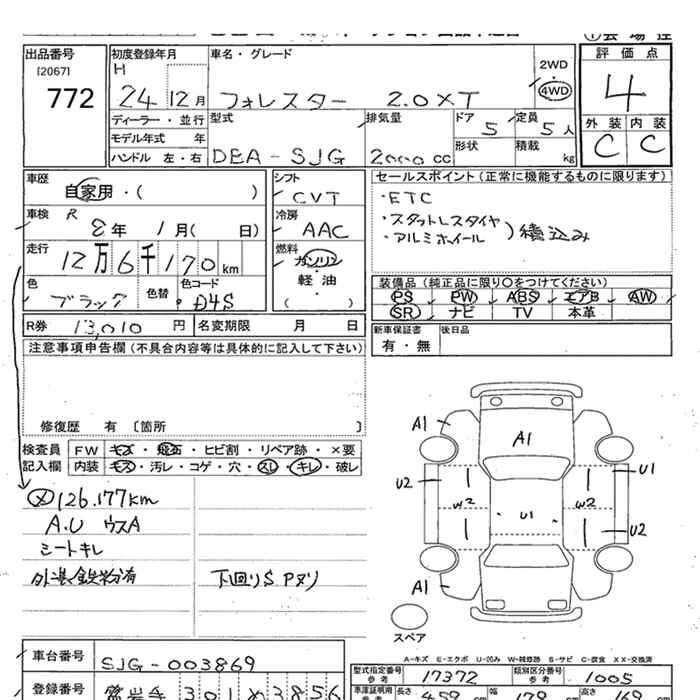 出品番号
[2067]
772
初度登録年月
H
24 12月
車名・グレード
フォレスター 2.0XT
2WD
4WD
評価点
4
外装 内装
C C
ディーラー・並行
モデル年式 年
ハンドル 左・右
型式
DBA-SJG
排気量
2000cc
ドア
5
定員
5人
形状
積載
kg
車歴
自家用・( )
シフト
CVT
車検 R
8年 1月( 日)
冷房
AAC
走行
12万6千170km
燃料
ガソリン
軽油
( )
色
ブラック
色替
色コード
D4S
セールスポイント(正常に機能するものに限ります)
・ETC
・スタットレスタイヤ
・アルミホイール )積込み
装備品(純正品に限り○をつけてください)
PS PW ABS エアB AW
SR ナビ TV 本革
R券 13,010円
名変期限 月 日
新車保証書
有・無
後日品
注意事項申告欄(不具合内容等は具体的に記入して下さい)
修復歴 有 [箇所 ]
検査員
記入欄
FW キズ・飛石・ヒビ割・リペア跡・×要
内装 キズ・汚レ・コゲ・穴・スレ・キレ・破レ
メ 126.177km
A.U ウスA
シートキレ
外装鉄粉有
下回りS Pヌリ
A1
A1
U2
U1
W2
U1
W2
U2
A1
スペア
A-キズ E-エクボ U-凹み W-補修跡 S-サビ C-腐食 XX-交換済
車台番号
SJG-003869
登録番号
301 め 3856
型式指定番号
参考
17372
類別区分番号
参考
1005
車庫証明用
参考
長さ
459
cm
幅
179
cm
高さ
169
cm